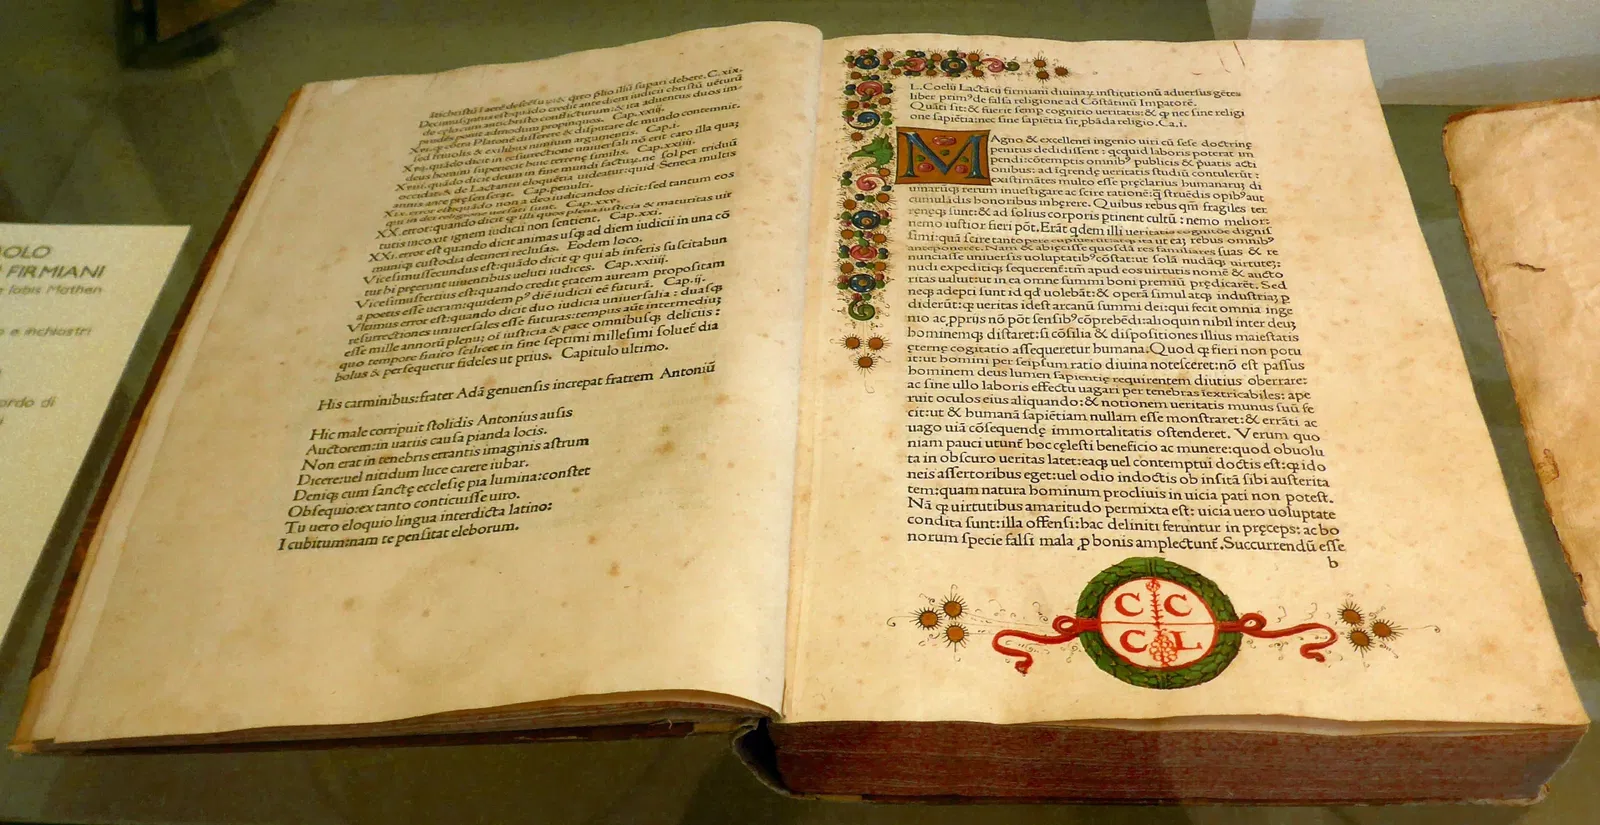 OLO
FIRMIANI
Iobis Mathen
o e inchiostri
ordo di
ãtichristũ
Decimusquintus est: quãdo credit ante diem iudicii christũ uẽturũ
de celo: cum antichristo conflicturum: & ita aduentus duos im
prudẽs ponit admodum propinquos. Cap. xxii.
Platonẽ differere & disputare de mundo contemnit.
sed friuolis & exilibus nimium argumentis. Cap. i.
quãdo dicit in resurrectione uniuersali nõ erit caro illa quã
deus homini superuenit huic terrenę similis. Cap. xxiii.
quãdo dicit deum in fine mundi ne sol per triduũ
occidat: & de Lactantii eloquẽtia uideatur: quid Seneca multis
annis ante pręsenserat. Cap. penulti.
XIX. error est quãdo non a deo iudicandos dicit: sed tantum eos
qui in dei religione uersati sunt. Cap. xxv.
XX. error: quando dicit illi quos plena iusticia & maturitas uir
tutis incoxit ignem iudicii non sentient. Cap. xxi.
XXI. error est quando dicit animas usq; ad diem iudicii in una cõ
muniq; custodia detineri reclusas. Eodem loco.
Vicesimussecundus est: quãdo dicit ꝙ qui ab inferis suscitabun
tur hi pręerunt uiuentibus ueluti iudices. Cap. xxiiii.
Vicesimustertius est: quando credit ętatem auream propositam
a poetis esse ueram: quidem p⁹ diẽ iudicii eẽ futurã. Cap. ii.
Vltimus error est: quando dicit duo iudicia uniuersalia: duasq;
resurrectiones uniuersales esse futuras: tempus aũt intermediuꝫ
esse mille annorũ plenũ: oĩ iusticia & pace omnibusq; deliciis:
quo tempore finito scilicet in fine septimi millesimi soluet̃ dia
bolus & persequetur fideles ut prius. Capitulo ultimo.
His carminibus: frater Adã genuensis increpat fratrem Antoniũ
Hic male corripuit stolidis Antonius ausis
Auctorem: in uariis causa pianda locis.
Non erat in tenebris errantis imaginis astrum
Dicere: uel nitidum luce carere iubar.
Deniq; cum sanctę ecclesię pia lumina: constet
Obsequio: ex tanto conticuisse uiro.
Tu uero eloquio lingua interdicta latino:
I cubitum: nam te pensitat eleborum.
L. Coelii Lactãtii firmiani diuinaꝝ institutionũ aduersus gẽtes
liber prim⁹ de falsa religione ad Cõstãtinũ Imperatorẽ.
Quãti sit: & fuerit semp cognitio ueritatis: & ꝙ nec sine religi
one sapiẽtia: nec sine sapiẽtia sit pbãda religio. Ca. i.
MAgno & excellenti ingenio uiri cũ sese doctrinę
penitus dedidissent: qcquid laboris poterat im
pendi: cõtemptis omnib⁹ publicis & puatis acti
onibus: ad iqrendę ueritatis studiũ contulerũt:
existimãtes multo esse pręclarius humanarũ di
uinarũq; rerum inuestigare ac scire rationẽ: ꝙ struẽdis opib⁹ aut
cumulãdis honoribus inhęrere. Quibus rebus qm̃ fragiles ter
renęq; sunt: & ad solius corporis ptinent cultũ: nemo melior:
nemo iustior fieri põt. Erãt qdem illi ueritatis cognitõe dignis
simi: quã scire tantopere cupiuerũt: ut eã rebus omnib⁹
anteponerent. Nam & abiecisse quosdã res familiares suas & re
nunciasse uniuersis uoluptatib⁹ cõstat: ut solã nudãq; uirtutẽ:
nudi expeditiq; sequerent̃: tm̃ apud eos uirtutis nomẽ & aucto
ritas ualuit: ut in ea omne summi boni premiũ pędicarẽt. Sed
neq; adepti sunt id qd uolebãt: & operã simul atq; industriã: p
diderũt: qꝫ ueritas idest arcanũ summi dei: qui fecit omnia inge
nio ac pprijs nõ põt sensib⁹ cõprehẽdi: alioquin nihil inter deuꝫ
hominemq; distaret: si cõsilia & dispositiones illius maiestatis
ęternę cogitatio assequeretur humana. Quod qꝫ fieri non potu
it: ut homini per seipsum ratio diuina notesceret: nõ est passus
hominem deus lumen sapientię requirentem diutius oberrare:
ac sine ullo laboris effectu uagari per tenebras iextricabiles: ape
ruit oculos eius aliquando: & notionem ueritatis munus suũ fe
cit: ut & humanã sapiẽtiam nullam esse monstraret: & errãti ac
uago uiã cõsequendę immortalitatis ostenderet. Verum quo
niam pauci utunt̃ hoc cęlesti beneficio ac munere: quod obuolu
ta in obscuro ueritas latet: eaq; uel contemptui doctis est: qꝫ ido
neis assertoribus eget: uel odio indoctis ob insitã sibi austerita
tem: quam natura hominum procliuis in uicia pati non potest.
Nã qꝫ uirtutibus amaritudo permixta est: uicia uero uoluptate
condita sunt: illa offensi: hac deliniti feruntur in pręceps: ac bo
norum specie falsi mala p bonis amplectunt̃. Succurrendũ esse
b
C C
C L